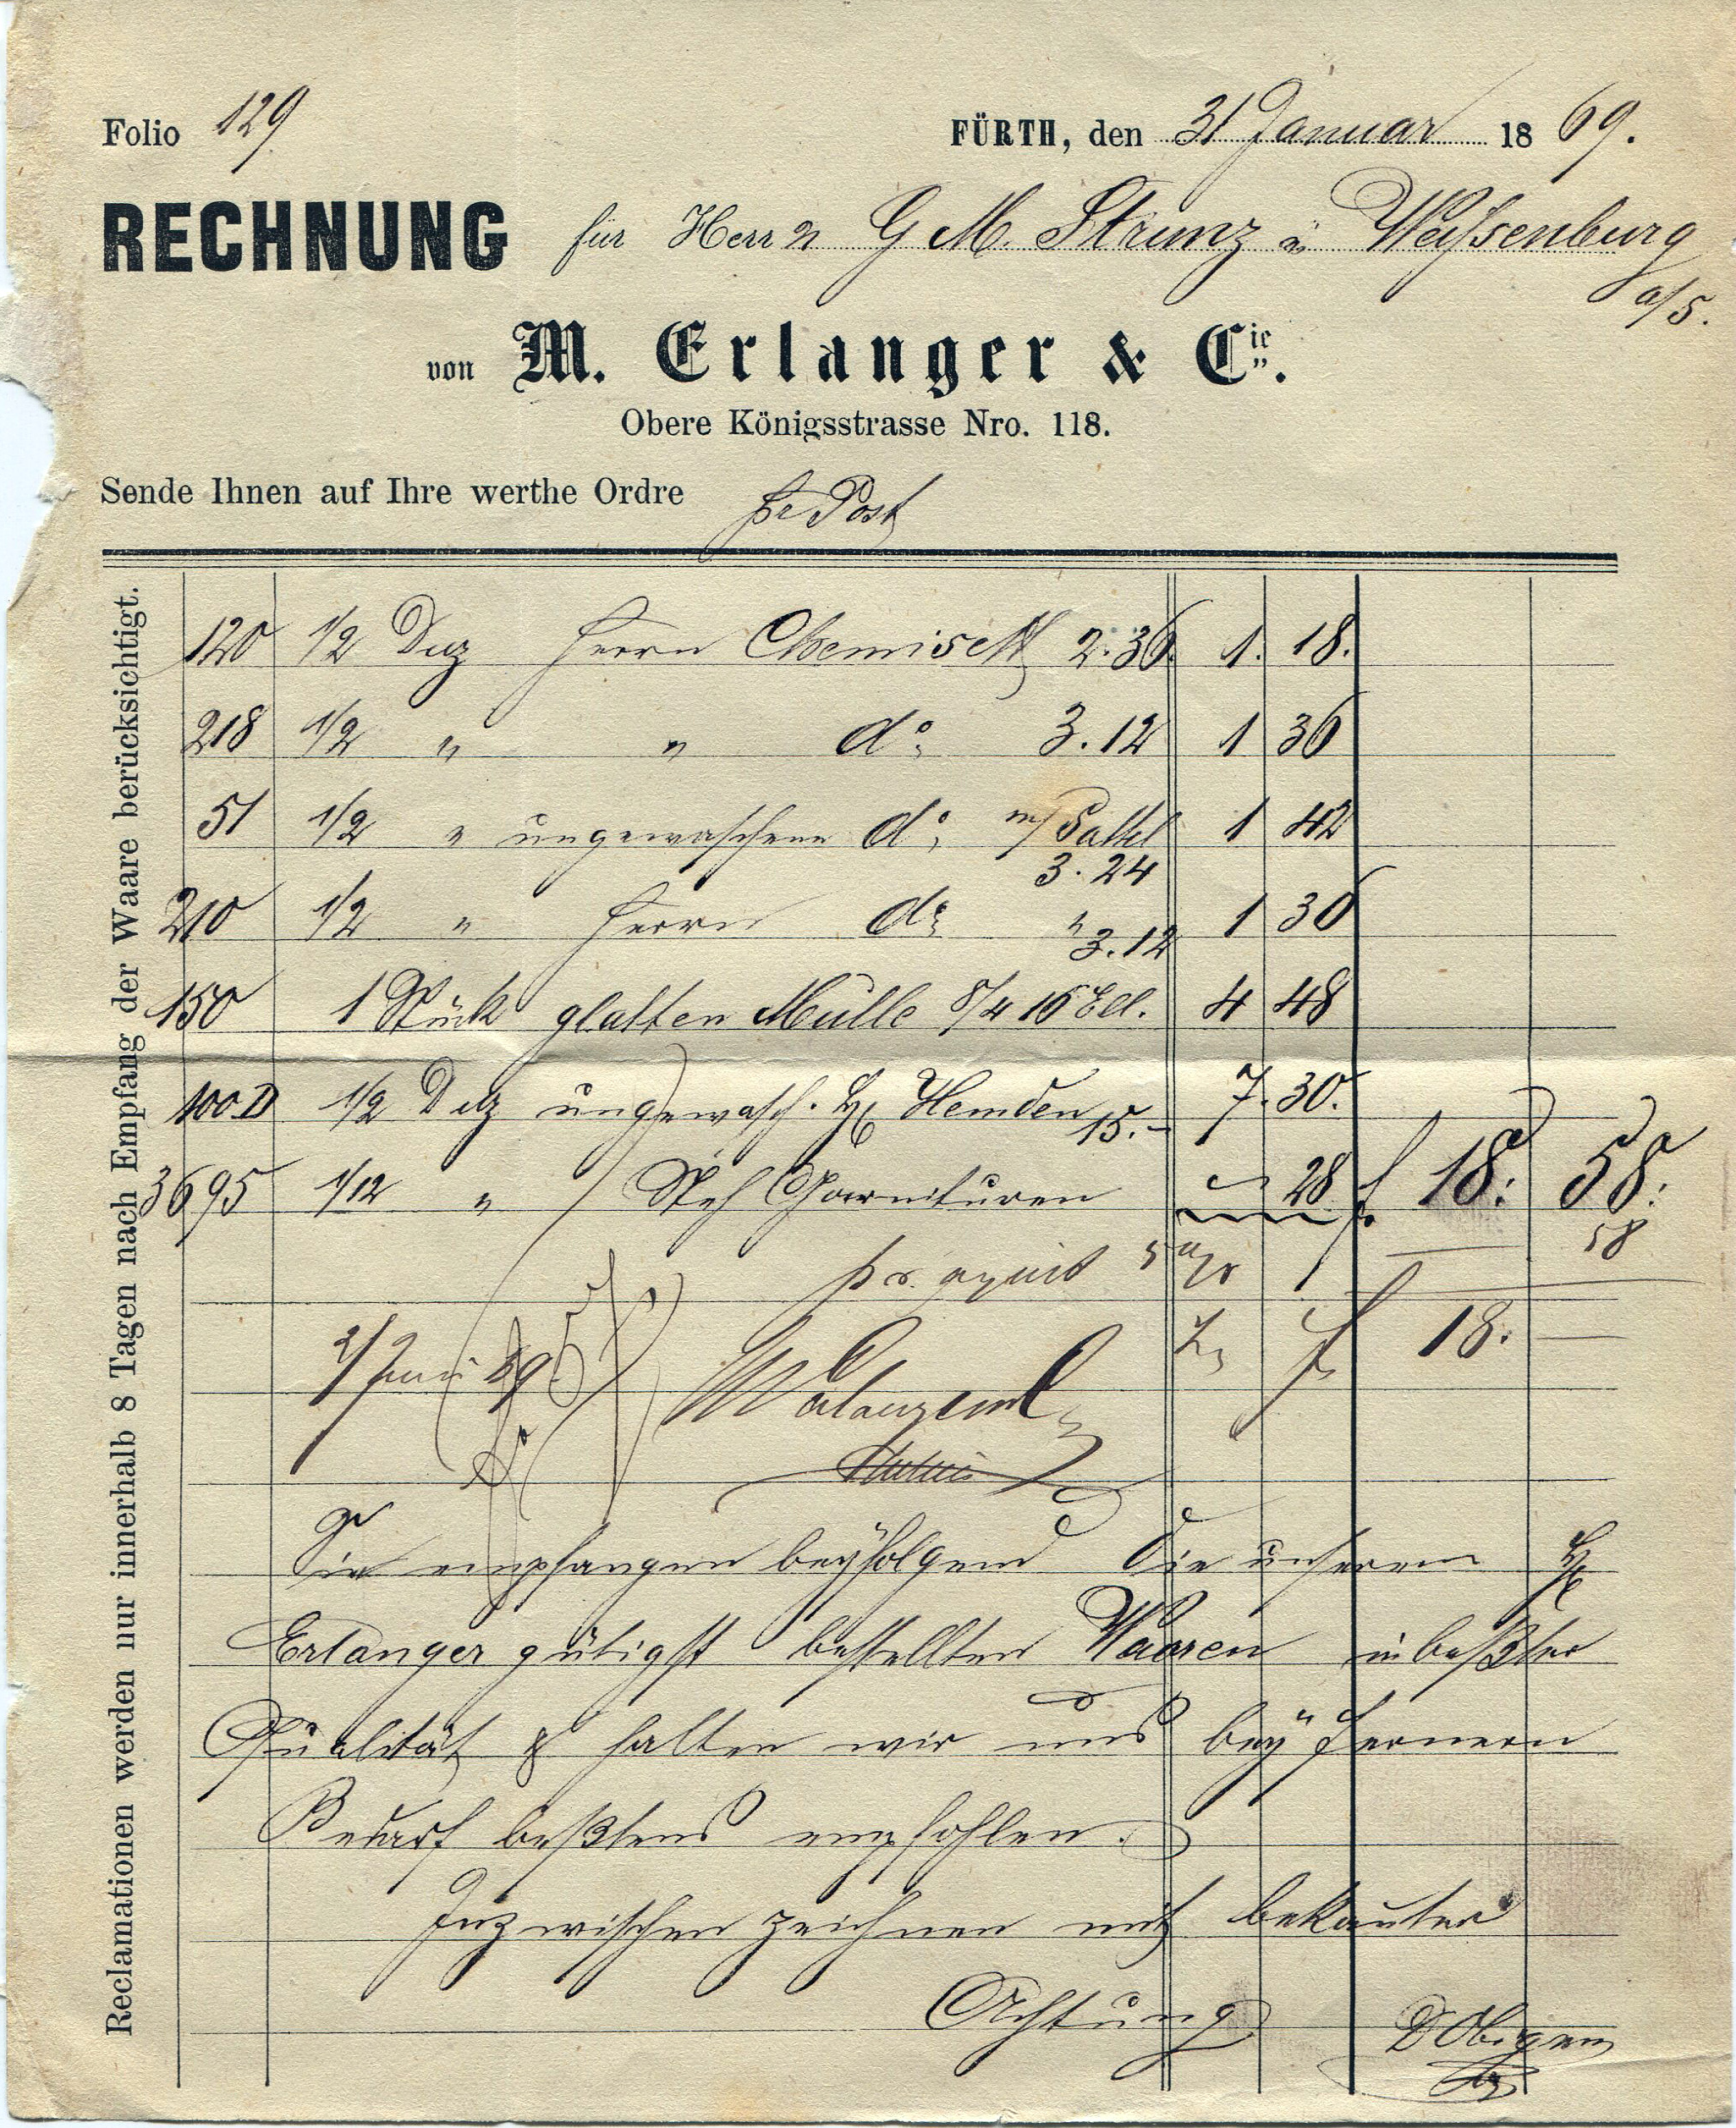 Folio 129
FÜRTH, den 31 Januar 1869.
RECHNUNG für Herrn G M. Strunz in Weissenburg
a/S.
von M. Erlanger & Cie.
Obere Königsstrasse Nro. 118.
Sende Ihnen auf Ihre werthe Ordre pr Post
Reclamationen werden nur innerhalb 8 Tagen nach Empfang der Waare berücksichtigt.
120 1/2 Duz Herrn Chemisett 2.36. 1. 18.
218 1/2 " " do 3.12 1 36
51 1/2 " ungewaschene do m/ Sattel 1 42
3.24
210 1/2 " Herrn do " 1 36
3.12
150 1 Stück glatten Mulle 8/4 16 Ell. 4 48
100D 1/2 Duz ungewasch. Hr Hemden 7. 30.
15.-
3695 1/12 " Steh Garnituren 28 f 18: 58:
58
f 18.
Sie empfangen beyfolgend die unserem Hr
Erlanger gütigst bestellten Waaren in beßter
Qualität & halten wir uns bey fernern
Bedarf beßtens empfohlen.
Inzwischen zeichnen mit bekannter
Achtung
D Obigen